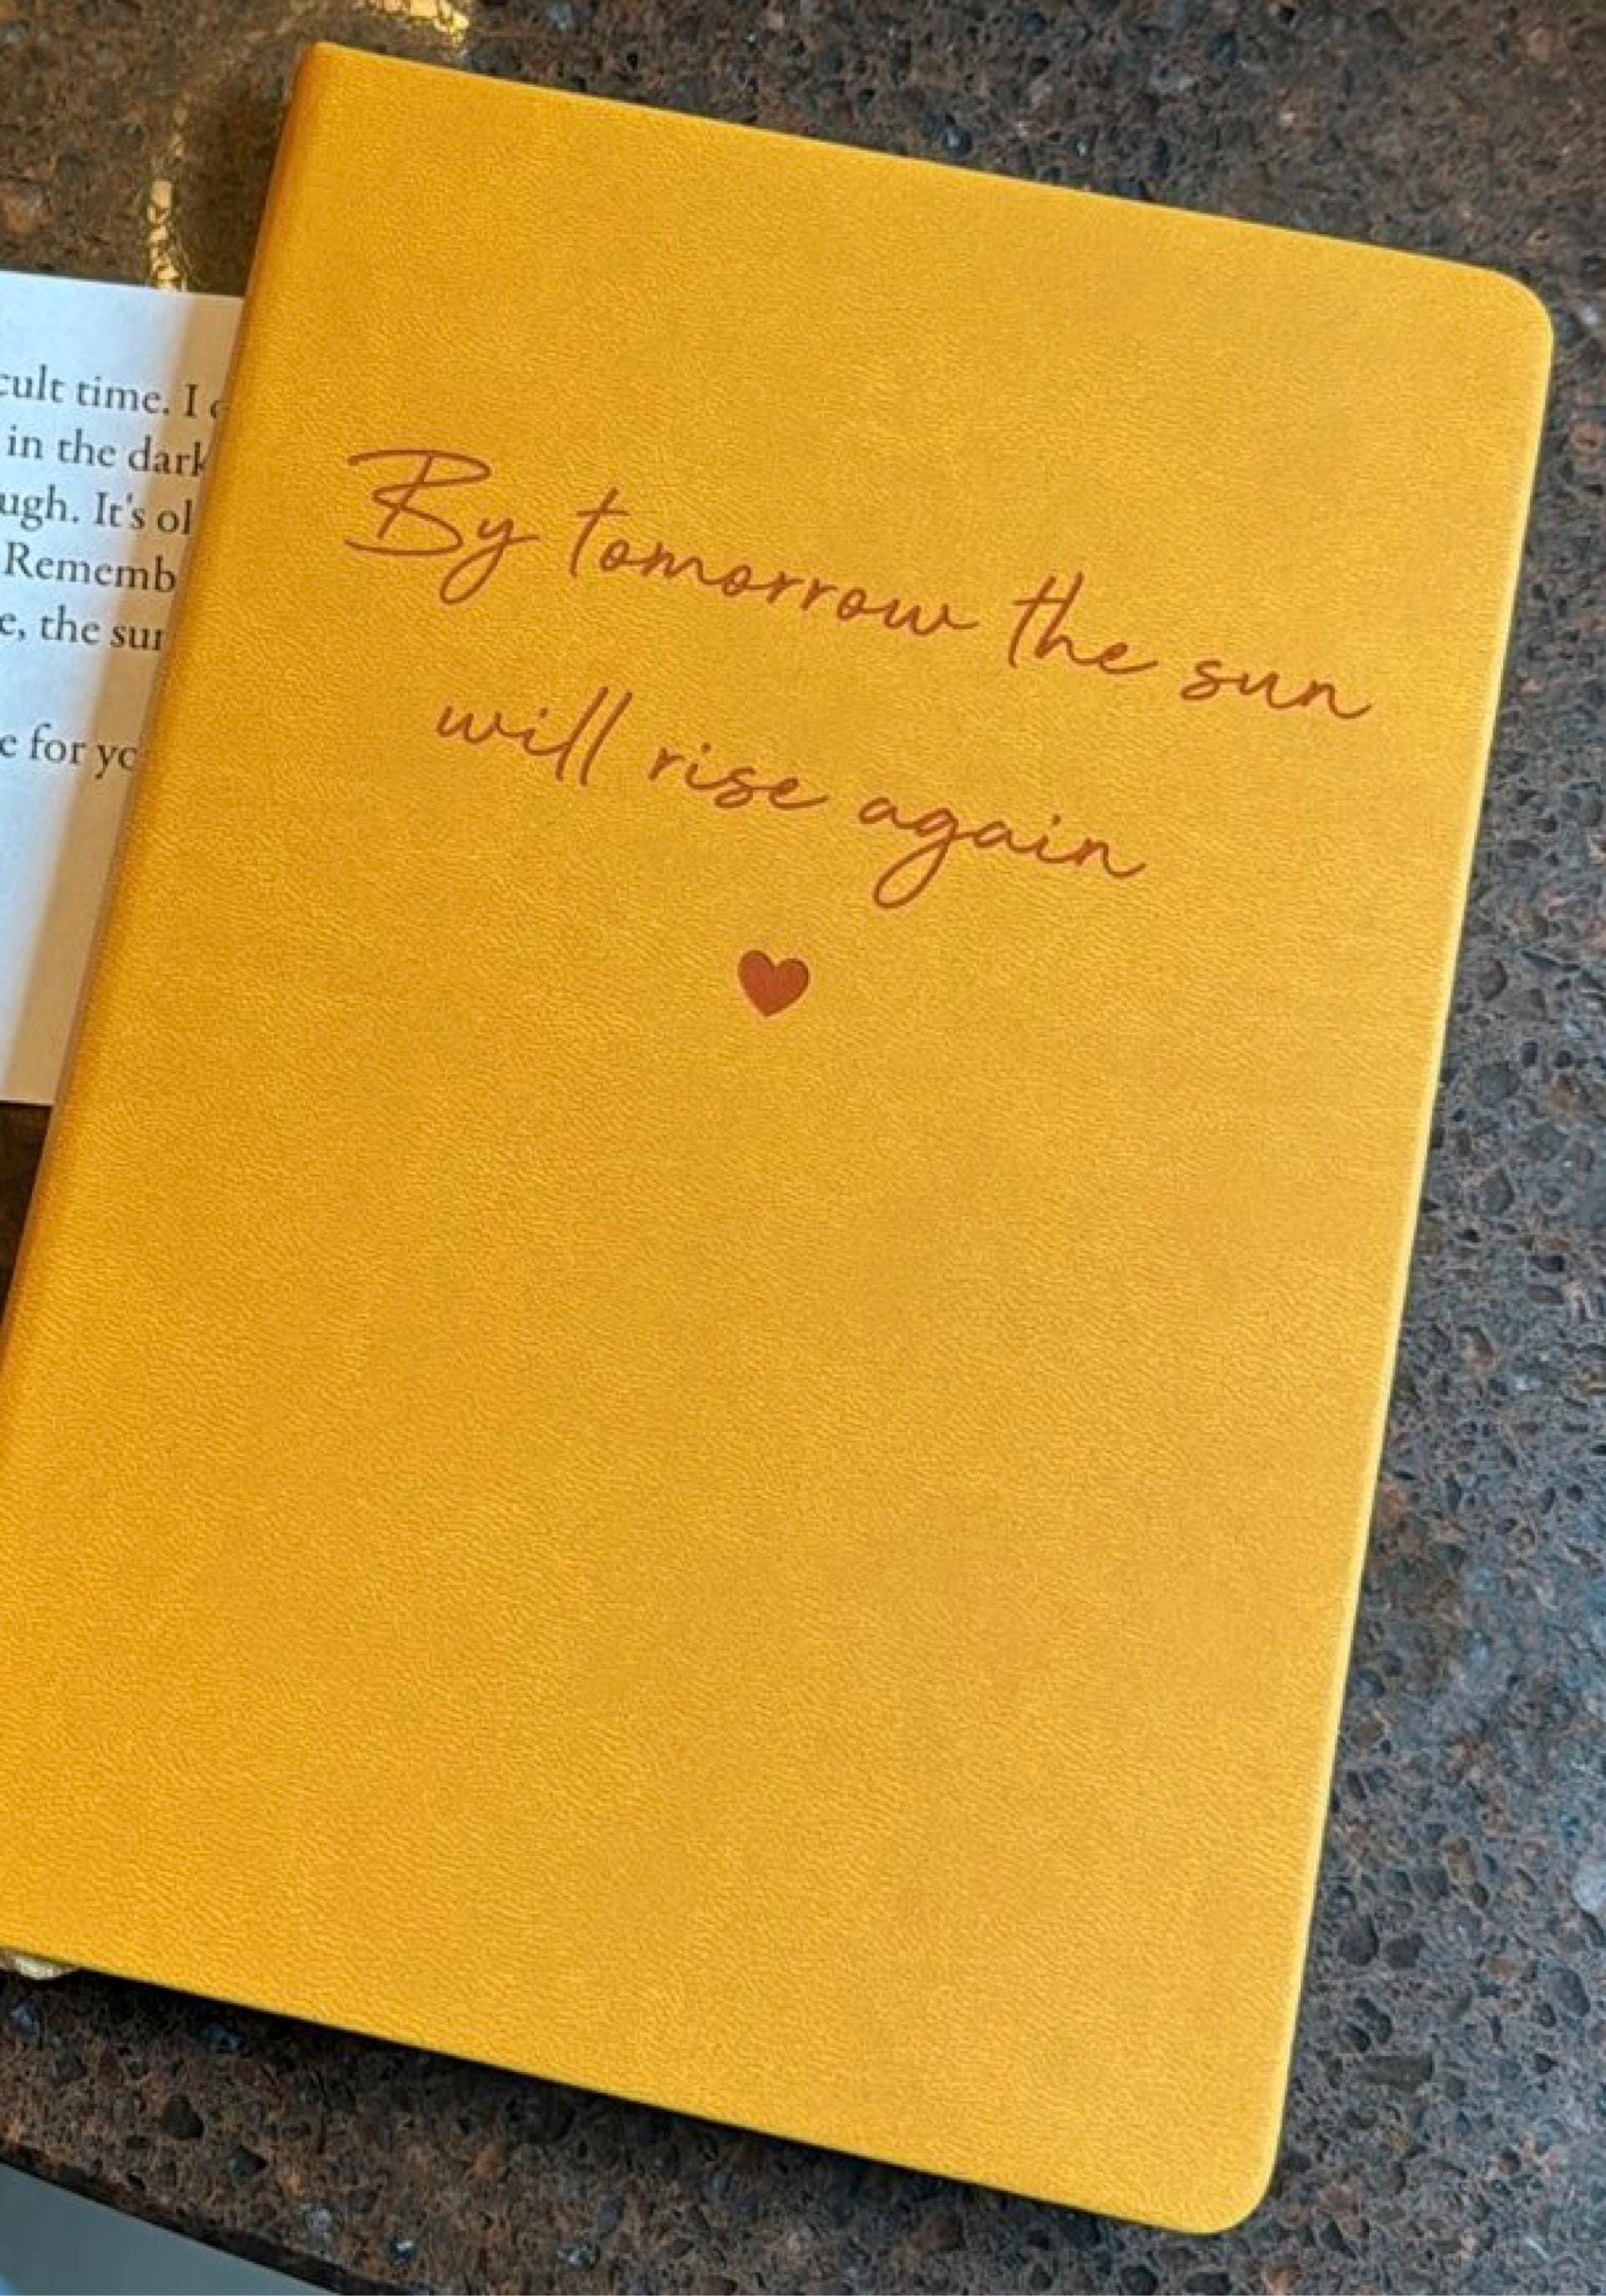 cult time. I
in the dark
ugh. It's ol
Rememb
e, the sun
e for yo
By tomorrow the sun
will rise again